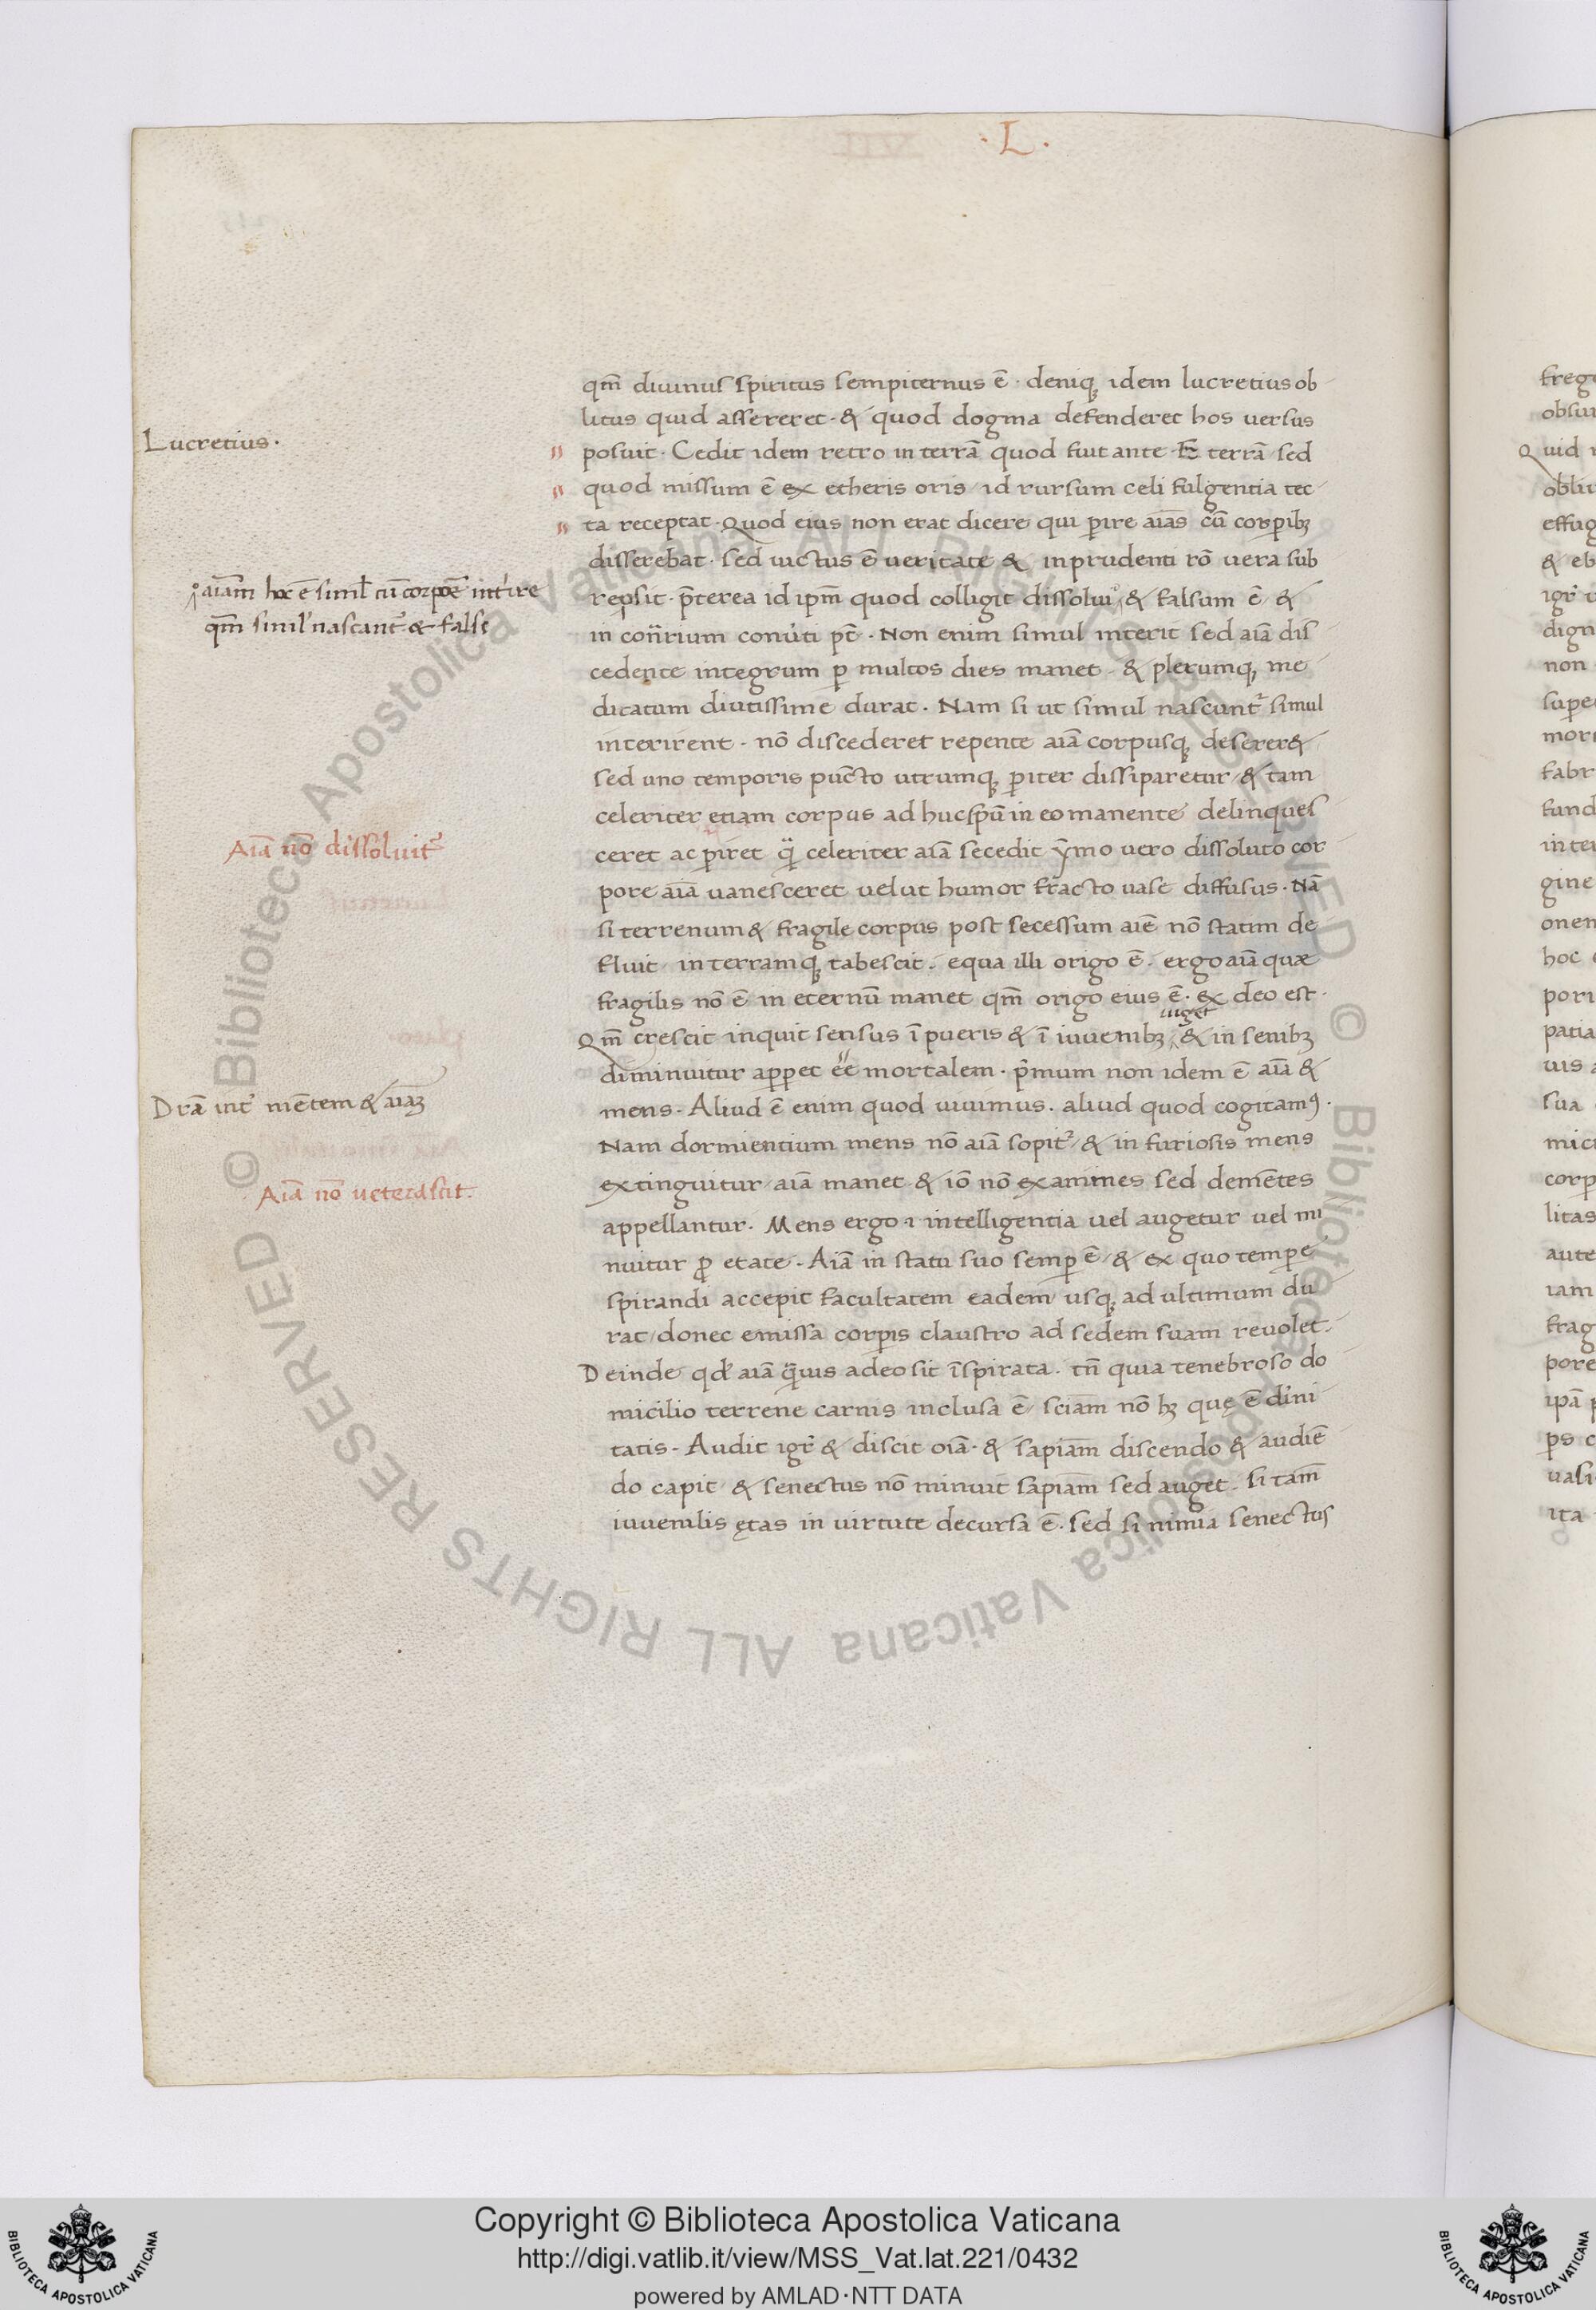 · L ·
qm̄ diuinus spiritus sempiternus ē · deniqꝫ idem lucretius ob
litus quid assereret · & quod dogma defenderet hos uersus
Lucretius ·
posuit · Cedit idem retro in terrā quod fuit ante · E terrā sed
quod missum ē ex etheris oris / id rursum celi fulgentia tec
ta receptat · Quod eius non erat dicere qui ꝑire aīas cū corꝑibꝫ
disserebat · sed uictus ē ueritate & inprudenti rō uera sub
aīam hoc ē simł cū corpoē int̓ire
qm̄ simił nascant᷑ & false
repsit · p̄terea id ipm̄ quod colligit dissolui / & falsum ē / &
in cont̄rium conũti pt̄ · Non enim simul interit sed aīa dis
cedente integrum ꝑ multos dies manet · & plerumqꝫ me
dicatum diutissime durat · Nam si ut simul nascunt᷑ simul
interirent · nō discederet repente aīa corpusqꝫ deserer&
sed uno temporis pūcto utrumqꝫ ꝑiter dissiparetur / & tam
celeriter etiam corpus ad huc spū in eo manente delinques
Aīa nō dissoluit᷑
ceret ac ꝑiret q̄ celeriter aīa secedit ẏmo uero dissoluto cor
pore aīa uanesceret uelut humor fracto uase diffusus · Nā
si terrenum & fragile corpus post secessum aīe nō statim de
fluit / in terramqꝫ tabescit · equa illi origo ē · ergo aīa quæ
fragilis nō ē in eternū manet qm̄ origo eius ē · ex deo est ·
Qm̄ crescit inquit sensus ī pueris & ī iuuenibꝫ uiget & in senibꝫ
diminuitur apꝑet eē mortalem · p̄mum non idem ē aīa &
Dr̄a int̓ mētem & aīaꝫ
mens · Aliud ē enim quod uiuimus · aliud quod cogitamꝰ ·
Nam dormientium mens nō aīa sopit᷑ / & in furiosis mens
Aīa nō ueterascit ·
extinguitur / aīa manet & iō nō exanimes sed demētes
appellantur · Mens ergo ·i· intelligentia uel augetur uel mi
nuitur ꝓ etate · Aīa in statu suo semꝑ ē / & ex quo temꝑe
spirandi accepit facultatem eadem usqꝫ ad ultimum du
rat / donec emissa corꝑis claustro ad sedem suam reuolet ·
Deinde qd̄ aīa q̄uis a deo sit īspirata · tn̄ quia tenebroso do
micilio terrene carnis inclusa ē / sciam̄ nō hꝫ quę ē diuini
tatis · Audit igr̓ & discit oīa · & sapiam̄ discendo & audiē
do capit / & senectus nō minuit sapiam̄ sed auget · si tam̄
iuuenilis ętas in uirtute decursa ē · sed si nimia senectus
© Biblioteca Apostolica Vaticana ALL RIGHTS RESERVED © Biblioteca Apostolica Vaticana ALL RIGHTS RESERVED
Copyright © Biblioteca Apostolica Vaticana
http://digi.vatlib.it/view/MSS_Vat.lat.221/0432
powered by AMLAD·NTT DATA
BIBLIOTECA APOSTOLICA VATICANA
BIBLIOTECA APOSTOLICA VATICANA